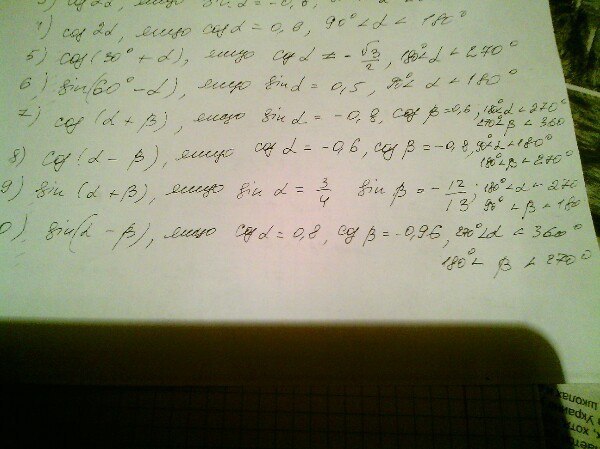 cos 2α, якщо sin α = -0,8,
4) cos 2α, якщо cos α = 0,8, 90° < α < 180°
5) cos(30° + α), якщо cos α = -√3/2, 180° < α < 270°
6) sin(60° - α), якщо sin α = 0,5, 90° < α < 180°
7) cos (α + β), якщо sin α = -0,8, cos β = 0,6, 180° < α < 270°
270° < β < 360
8) cos (α - β), якщо cos α = -0,6, cos β = -0,8, 90° < α < 180°
180° < β < 270°
9) sin (α + β), якщо sin α = 3/4 sin β = -12/13; 180° < α < 270
90° < β < 180
0) sin(α - β), якщо cos α = 0,8, cos β = -0,96, 270° < α < 360°
180° < β < 270°
Украи
школах